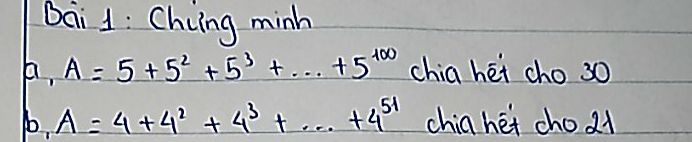 Bài 1: Chứng minh
a, A = 5 + 5² + 5³ + ... + 5¹⁰⁰ chia hết cho 30
b, A = 4 + 4² + 4³ + ... + 4⁵¹ chia hết cho 21